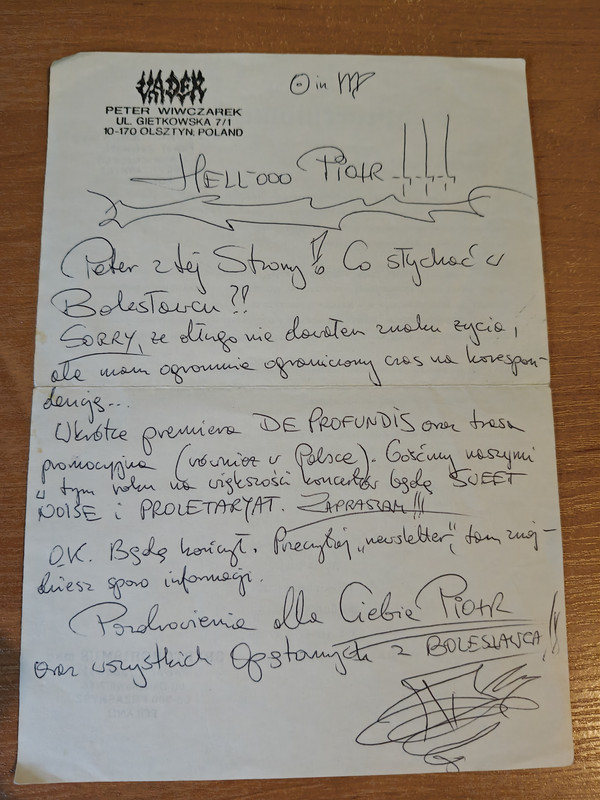 VADER
PETER WIWCZAREK
UL. GIETKOWSKA 7/1
10-170 OLSZTYN, POLAND
in
HELL-OOO PIOTR !!!
Peter z tej Strony! Co słychać w
Bolesławcu ?!
SORRY, że długo nie dawałem znaku życia,
ale mam ogromnie ograniczony czas na korespon-
dencję...
Wkrótce premiera DE PROFUNDIS oraz trasa
promocyjna (również w Polsce). Gośćmi naszymi
w tym roku na większości koncertów będą SWEET
NOISE i PROLETARYAT. ZAPRASZAM!!!
O.K. Będę kończył. Przeczytaj "newsletter", tam znaj-
dziesz sporo informacji.
Pozdrowienia dla Ciebie PIOTR
oraz wszystkich Opętanych z BOLESŁAWCA!!